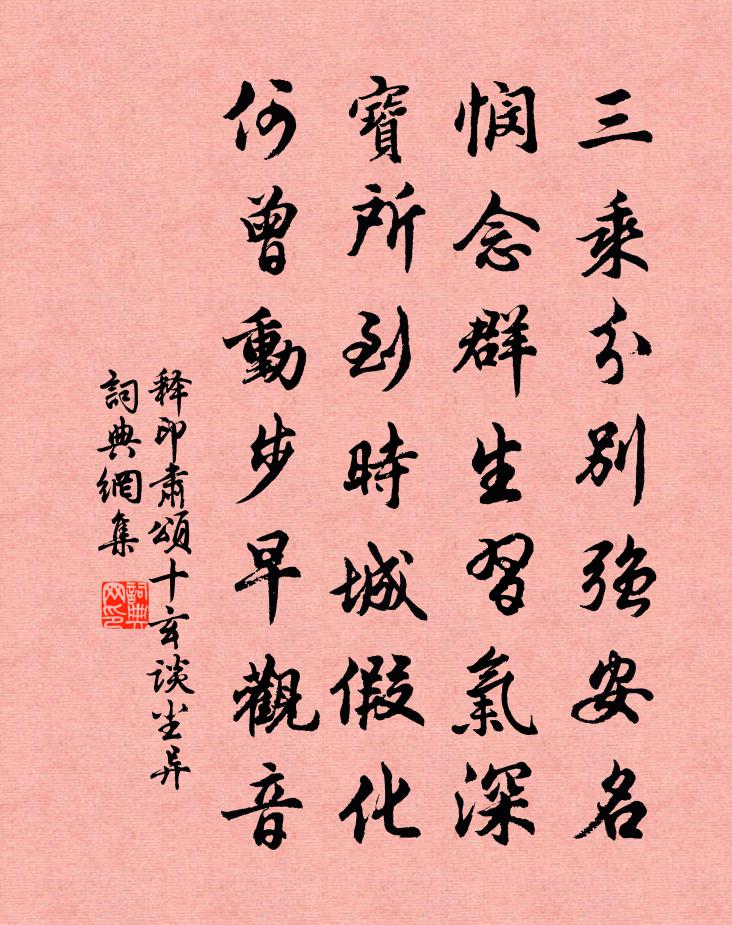 三乘分别强安名
悯念群生習氣深
寶所到時城假化
何曾動步早觀音
释印肅頌十玄谈尘异
詞典網集
詞典网印